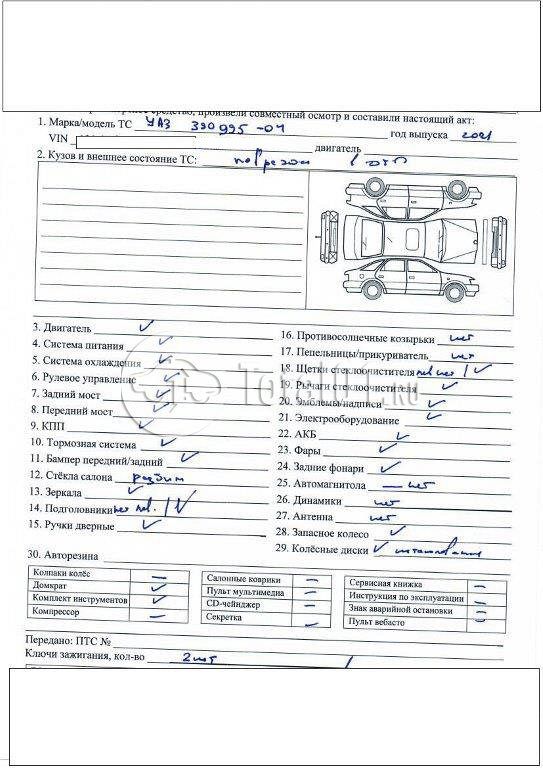 средство, произвели совместный осмотр и составили настоящий акт:
1. Марка/модель ТС УАЗ 390995-04 год выпуска 2021
VIN двигатель
2. Кузов и внешнее состояние ТС: ДТП
3. Двигатель ✓
4. Система питания ✓
5. Система охлаждения ✓
6. Рулевое управление ✓
7. Задний мост ✓
8. Передний мост ✓
9. КПП ✓
10. Тормозная система ✓
11. Бампер передний/задний ✓
12. Стёкла салона разбит
13. Зеркала ✓
14. Подголовники нет лев. / ✓
15. Ручки дверные ✓
16. Противосолнечные козырьки нет
17. Пепельницы/прикуриватель нет
18. Щетки стеклоочистителя лев нет / ✓
19. Рычаги стеклоочистителя ✓
20. Эмблемы/надписи ✓
21. Электрооборудование ✓
22. АКБ ✓
23. Фары ✓
24. Задние фонари ✓
25. Автомагнитола — нет
26. Динамики нет
27. Антенна нет
28. Запасное колесо ✓
29. Колёсные диски ✓ штамповка
30. Авторезина
Колпаки колёс —
Домкрат ✓
Комплект инструментов ✓
Компрессор —
Салонные коврики —
Пульт мультимедиа —
CD-чейнджер —
Секретка ✓
Сервисная книжка —
Инструкция по эксплуатации —
Знак аварийной остановки —
Пульт вебасто —
Передано: ПТС №
Ключи зажигания, кол-во 2 шт